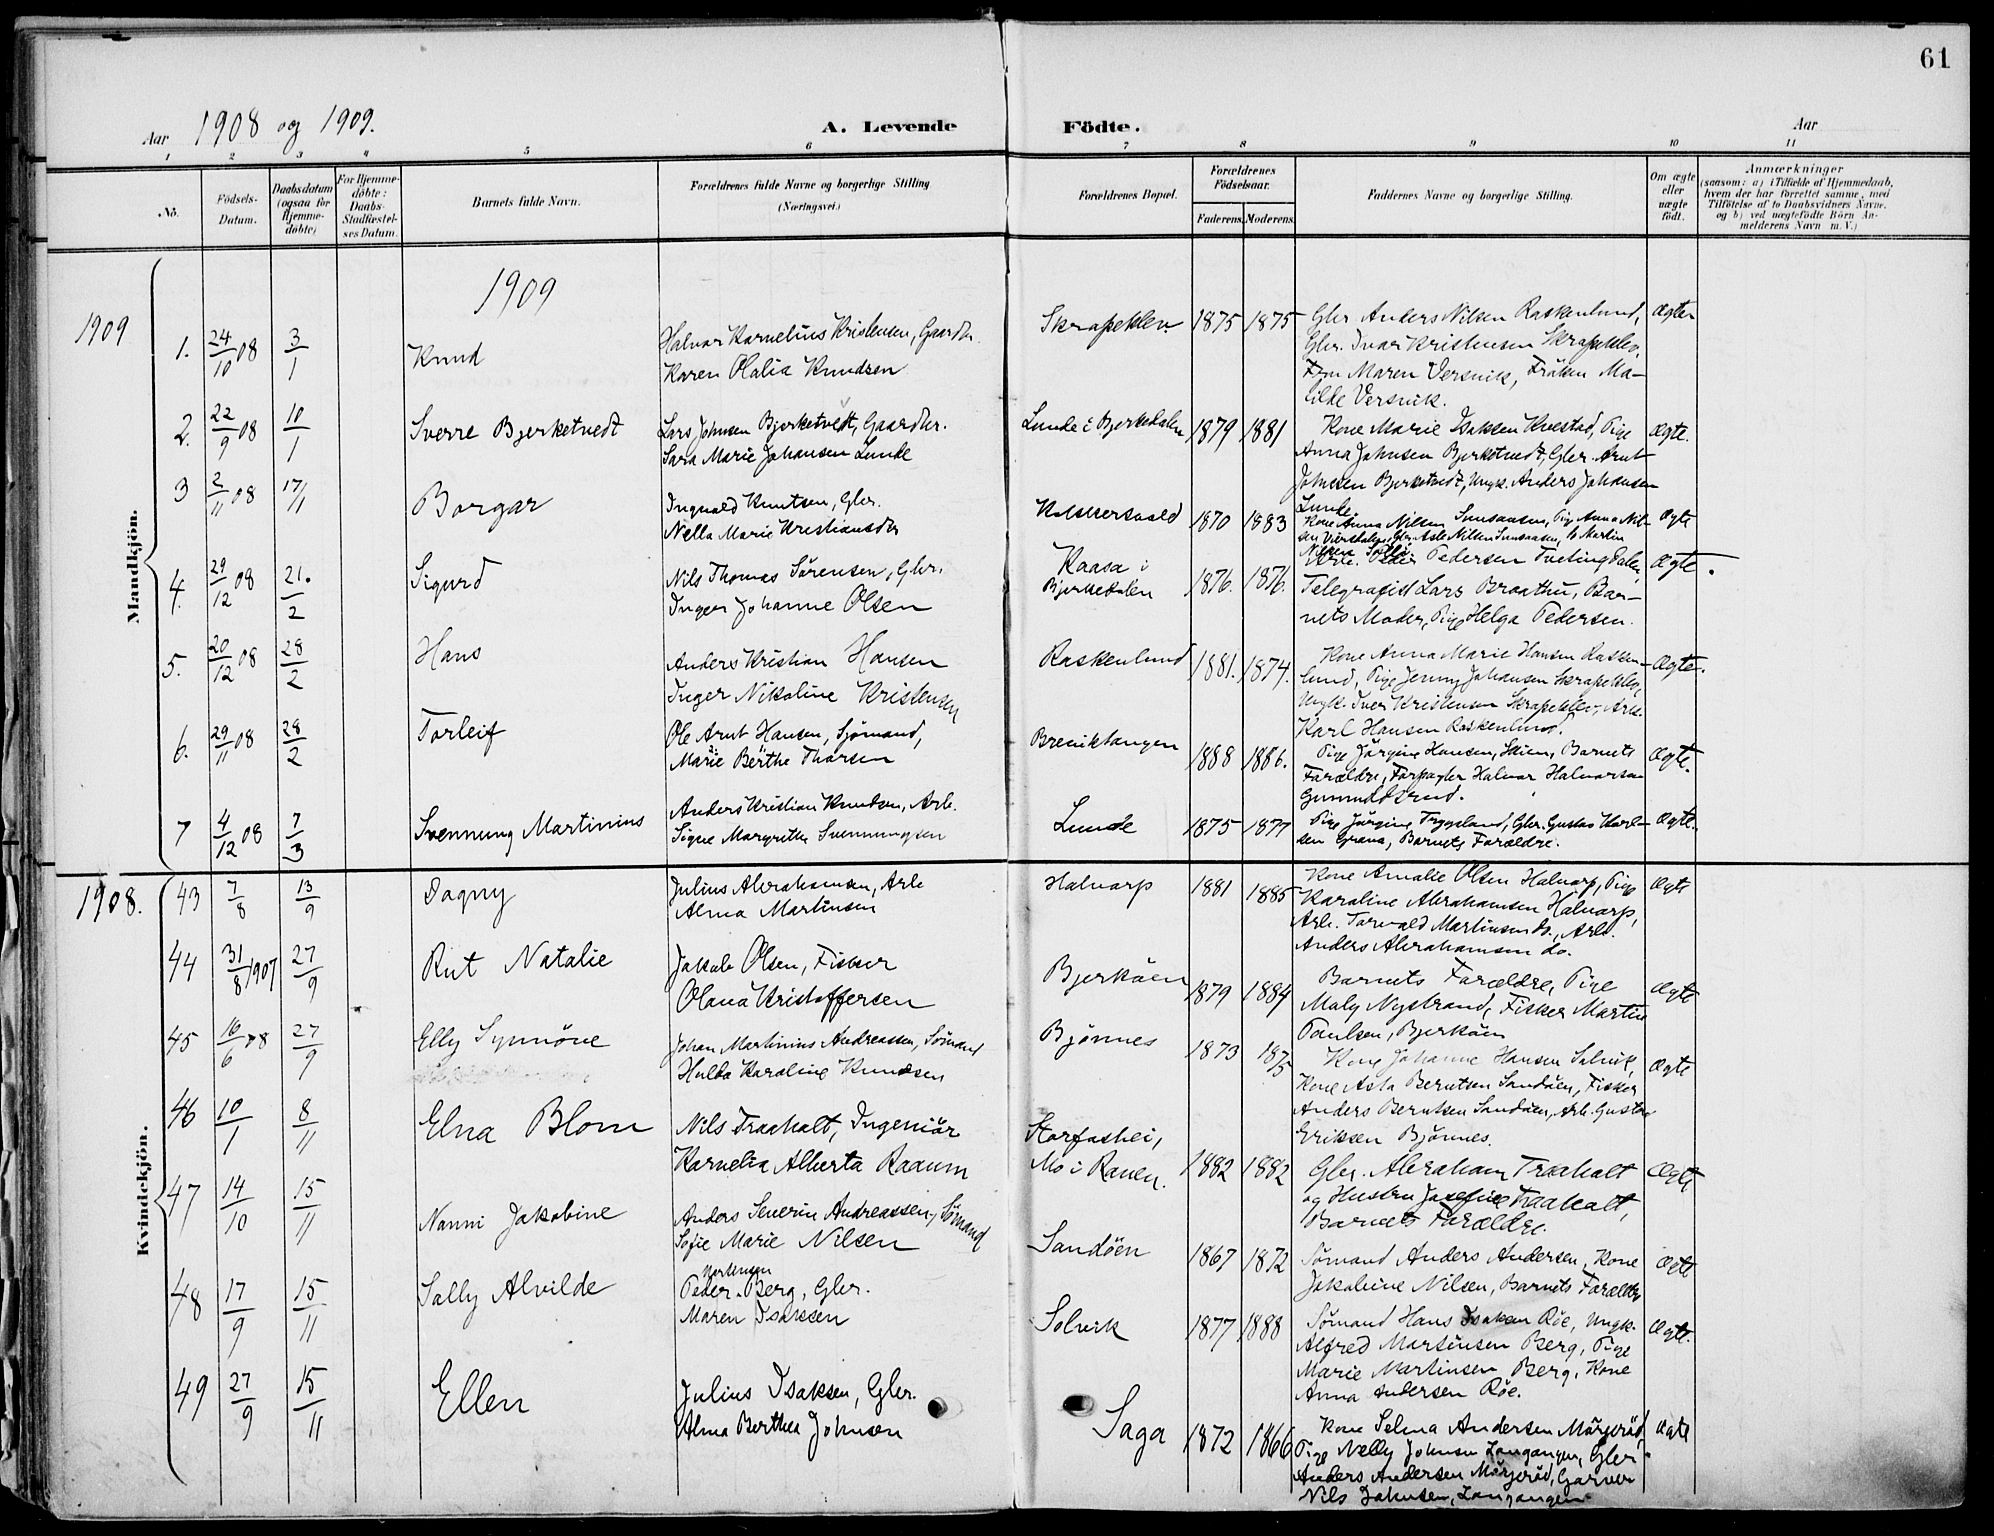 61
Aar 1908 og 1909.
A. Levende Födte.
Aar
1 2 3 4 5 6 7 8 9 10 11
No.
Födsels-Datum.
Daabsdatum (ogsaa for Hjemme-döbte)
For Hjemme-döbte: Daabs-Stadfæstel-ses Datum.
Barnets fulde Navn.
Forældrenes fulde Navne og borgerlige Stilling (Næringsvei.)
Forældrenes Bopæl.
Forældrenes Födselsaar.
Faderens. Moderens.
Faddernes Navne og borgerlige Stilling.
Om ægte eller uægte födt.
Anmærkninger
(saasom: a) i Tilfælde af Hjemmedaab,
hvem der har forrettet samme, med
Tilföielse af to Daabsvidners Navne.
og b) ved uægtefödte Börn An-
melderens Navn m. V.)
Mandkjön.
1909
1909
1. 24/10 08 3/1 Knud
Halvor Kornelius Kristensen, Gaardbr.
Karen Olalia Knudsen
Skrapeklev 1875 1875
Gbr Anders Nilsen Raskenlund,
Gbr. Ivar Kristensen Skrapeklev,
Fru Maren Versvik, Fröken Ma-
tilde Versvik.
Ægte
2. 22/9 08 10/1 Sverre Bjerketvedt
Lars Johnsen Bjerketvedt, Gaardbr.
Sara Marie Johansen Lunde
Lunde i Bjerkedalen 1879 1881
Kone Marie Isaksen Knestad, Pige
Anna Johnsen Bjerketvedt, Gbr. Arnt
Johnsen Bjerketvedt, Ungk. Anders Johansen
Lunde
Ægte.
3 2/11 08 17/1 Borgar
Ingvald Knutsen, Gbr.
Nella Marie Kristiansdtr
1870 1883
Kone Anna Nilsen
Ægte
4. 29/12 08 21./2 Sigurd
Nils Thomas Sörensen, Gbr.
Inger Johanne Olsen
Kaasa i
Bjerkedalen 1876. 1876.
Pedersen
Telegrafist Lars Braathu, Bar-
nets Moder, Pige Helga Pedersen.
Ægte.
5. 20/12 08 28/2 Hans
Anders Kristian Hansen
Inger Nikoline Kristensen
Raskenlund 1881. 1874.
Kone Anna Marie Hansen Rasken-
lund, Pige Jenny Johansen Skrapeklev,
Ungk. Iver Kristensen Skrapeklev, Arb.
Karl Hansen Raskenlund.
Ægte.
6. 29/11 08 28/2 Torleif
Ole Arnt Hansen, Sjömand,
Marie Berthe Thorsen
Breviktangen 1888 1886.
Pige Jörgine Hansen, Skien, Barnets
Forældre, Forpagter Halvor Halvorsen
Ægte.
7 4/12 08 7/3 Svennung Martinius
Anders Kristian Knudsen, Arb.
Signe Margrethe Svennungsen
Lunde 1875 1877
Pige Jörgine Tryggland, Gbr. Gustav Karl-
sen Grava, Barnets Forældre.
Ægte.
Kvindekjön.
1908.
43 7/8 13/9 Dagny
Julius Abrahamsen, Arb
Alma Martinsen
Halvarp 1881 1885
Kone Amalie Olsen Halvarp, Pige
Karoline Abrahamsen Halvarp,
Arb. Torvald Martinsen do., Arb.
Anders Abrahamsen do.
Ægte
44 31/8 1907 27/9 Rut Natalie
Jakob Olsen, Fisker
Olava Kristoffersen
Bjerköen 1879 1884
Barnets Forældre, Pige
Maly Nystrand, Fisker Martin
Paulsen, Bjerköen
Ægte
45 16/6 08 27/9 Elly Synnöve
Johan Martinius Andreassen, Sömand
Hulda Karoline Knudsen
Bjönnes 1873 1875
Kone Johanne Hansen Solvik,
Kone Asta Berntsen Sandöen, Fisker
Anders Berntsen Sandöen, Arb. Gustav
Eriksen Bjönnes.
Ægte
46 10/1 8/11 Elna Blom
Nils Traaholt, Ingeniör
Kornelia Alberta Raaum
Storfoshei,
Mo i Ranen. 1882 1882
Gbr. Abraham Traaholt
og Hustru Josefine Traaholt,
Barnets Forældre
Ægte
47 14/10 15/11 Nanni Jakobine
Anders Severin Andreassen, Sömand
Sofie Marie Nilsen
Sandöen 1867 1872
Sömand Anders Andersen, Kone
Jakobine Nilsen, Barnets Forældre
Ægte
48 17/9 15/11 Sally Alvilde
Mortensen
Peder Berg, Gbr.
Maren Isaksen
Solvik 1877 1888
Sömand Hans Isaksen Röe, Ungk.
Alfred Martinsen Berg, Pige
Marie Martinsen Berg, Kone
Anna Andersen Röe.
Ægte.
49 27/9 15/11 Ellen
Julius Isaksen, Gbr.
Alma Berthea Johnsen
Saga 1872 1866
Kone Selma Andersen Mörjeröd,
Pige Nelly Johnsen Langangen, Gbr.
Anders Andersen Mörjeröd, Garver
Nils Johnsen, Langangen
Ægte